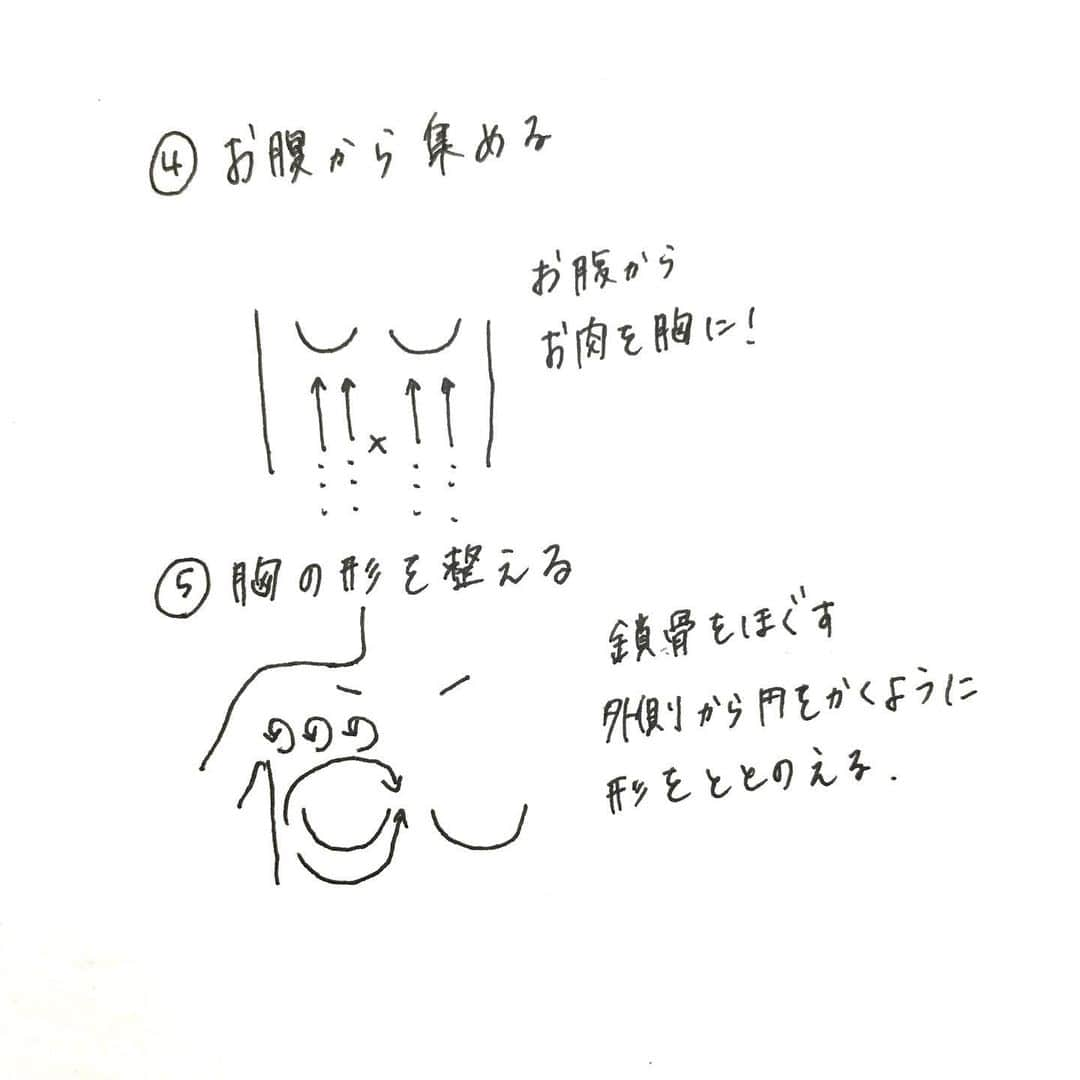 ④ お腹から集める
お腹から
お肉を胸に!
×
⑤ 胸の形を整える
鎖骨をほぐす
外側から円をかくように
形をととのえる.